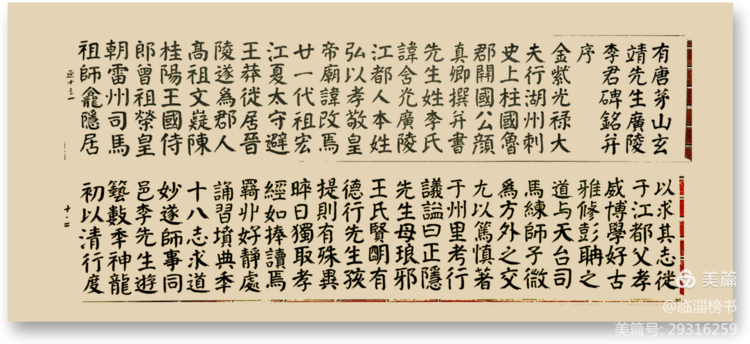 有唐茅山玄
靖先生廣陵
李君碑銘并
序
金紫光祿大
夫行湖州刺
史上柱國魯
郡開國公顏
真卿撰并書
先生姓李氏
諱含光廣陵
江都人本姓
弘以孝敬皇
帝廟諱改焉
廿一代祖宏
江夏太守避
王莽徙居晉
陵遂為郡人
高祖文嶷陳
桂陽王國侍
郎曾祖榮皇
朝雷州司馬
祖師龕隱居
以求其志徙
于江都父孝
威博學好古
雅修彭聃之
道与天台司
馬練師子微
為方外之交
尤以篤慎著
于州里考行
議謚曰正隱
先生母琅邪
王氏賢明有
德行先生孩
提則有殊異
晬日獨取孝
經如捧讀焉
羈丱好靜處
誦習墳典年
十八志求道
妙遂師事同
邑李先生遊
藝數年神龍
初以清行度
美篇
@临淄榜书
美篇号: 29316259